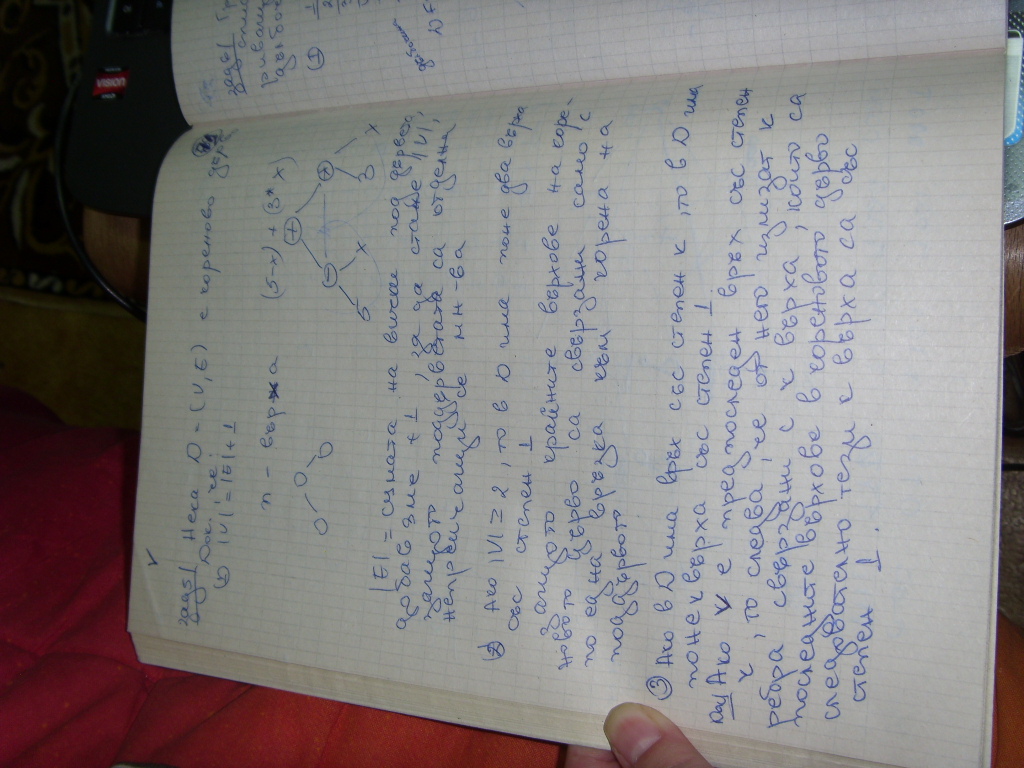 зад5| Нека D = (V, E) е кореново дърво
Док, че:
1) |V| = |E| + 1
n - върха
(5-x) + (3*x)
+
- *
5 x 3 x
|E| = сумата на всички под дървета,
добавяме + 1, за да стане |V|,
защото поддърветата са отделни
непресичащи се мн-ва
2) Ако |V| ≥ 2, то в D има поне два върха
със степен 1
защото крайните върхове на коре-
новото дърво са свързани само с
по една връзка към корена на
поддървото
3) Ако в D има връх със степен k, то в D има
поне k върха със степен 1
Док| Ако v е предпоследен връх със степен
k, то следва, че от него излизат k
ребра, свързани с k върха, които са
последните върхове в кореновото дърво
следователно тези k върха са със
степен 1.
зад6|
1
VISION